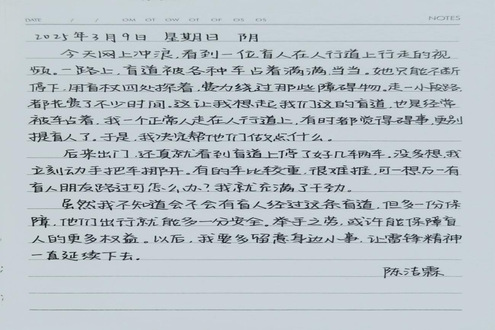 DATE / / OM OT OW OT OF OS OS NOTES
2025年3月9日 星期日 阴
今天网上冲浪，看到一位盲人在人行道上行走的视
频。一路上，盲道被各种车占着满满当当。她只能不断
停下，用盲杖四处探着，费力绕过那些障碍物。走一小段路
都花费了不少时间。这让我想起我们这的盲道，也是经常
被车占着，我一个正常人走在人行道上，有时都觉得碍事，更别
提盲人了。于是，我决定帮他们做点什么。
后来出门，还真就看到盲道上停了好几辆车。没多想，我
立刻动手把车挪开。有的车比较重，很难推，可一想万一有
盲人朋友路过可怎么办？我就充满了干劲。
虽然我不知道会不会有盲人经过这条盲道，但多一份保
障，他们出行就能多一分安全。举手之劳，或许能保障盲
人的更多权益。以后，我要多留意身边小事，让雷锋精神
一直延续下去。
陈洁霖